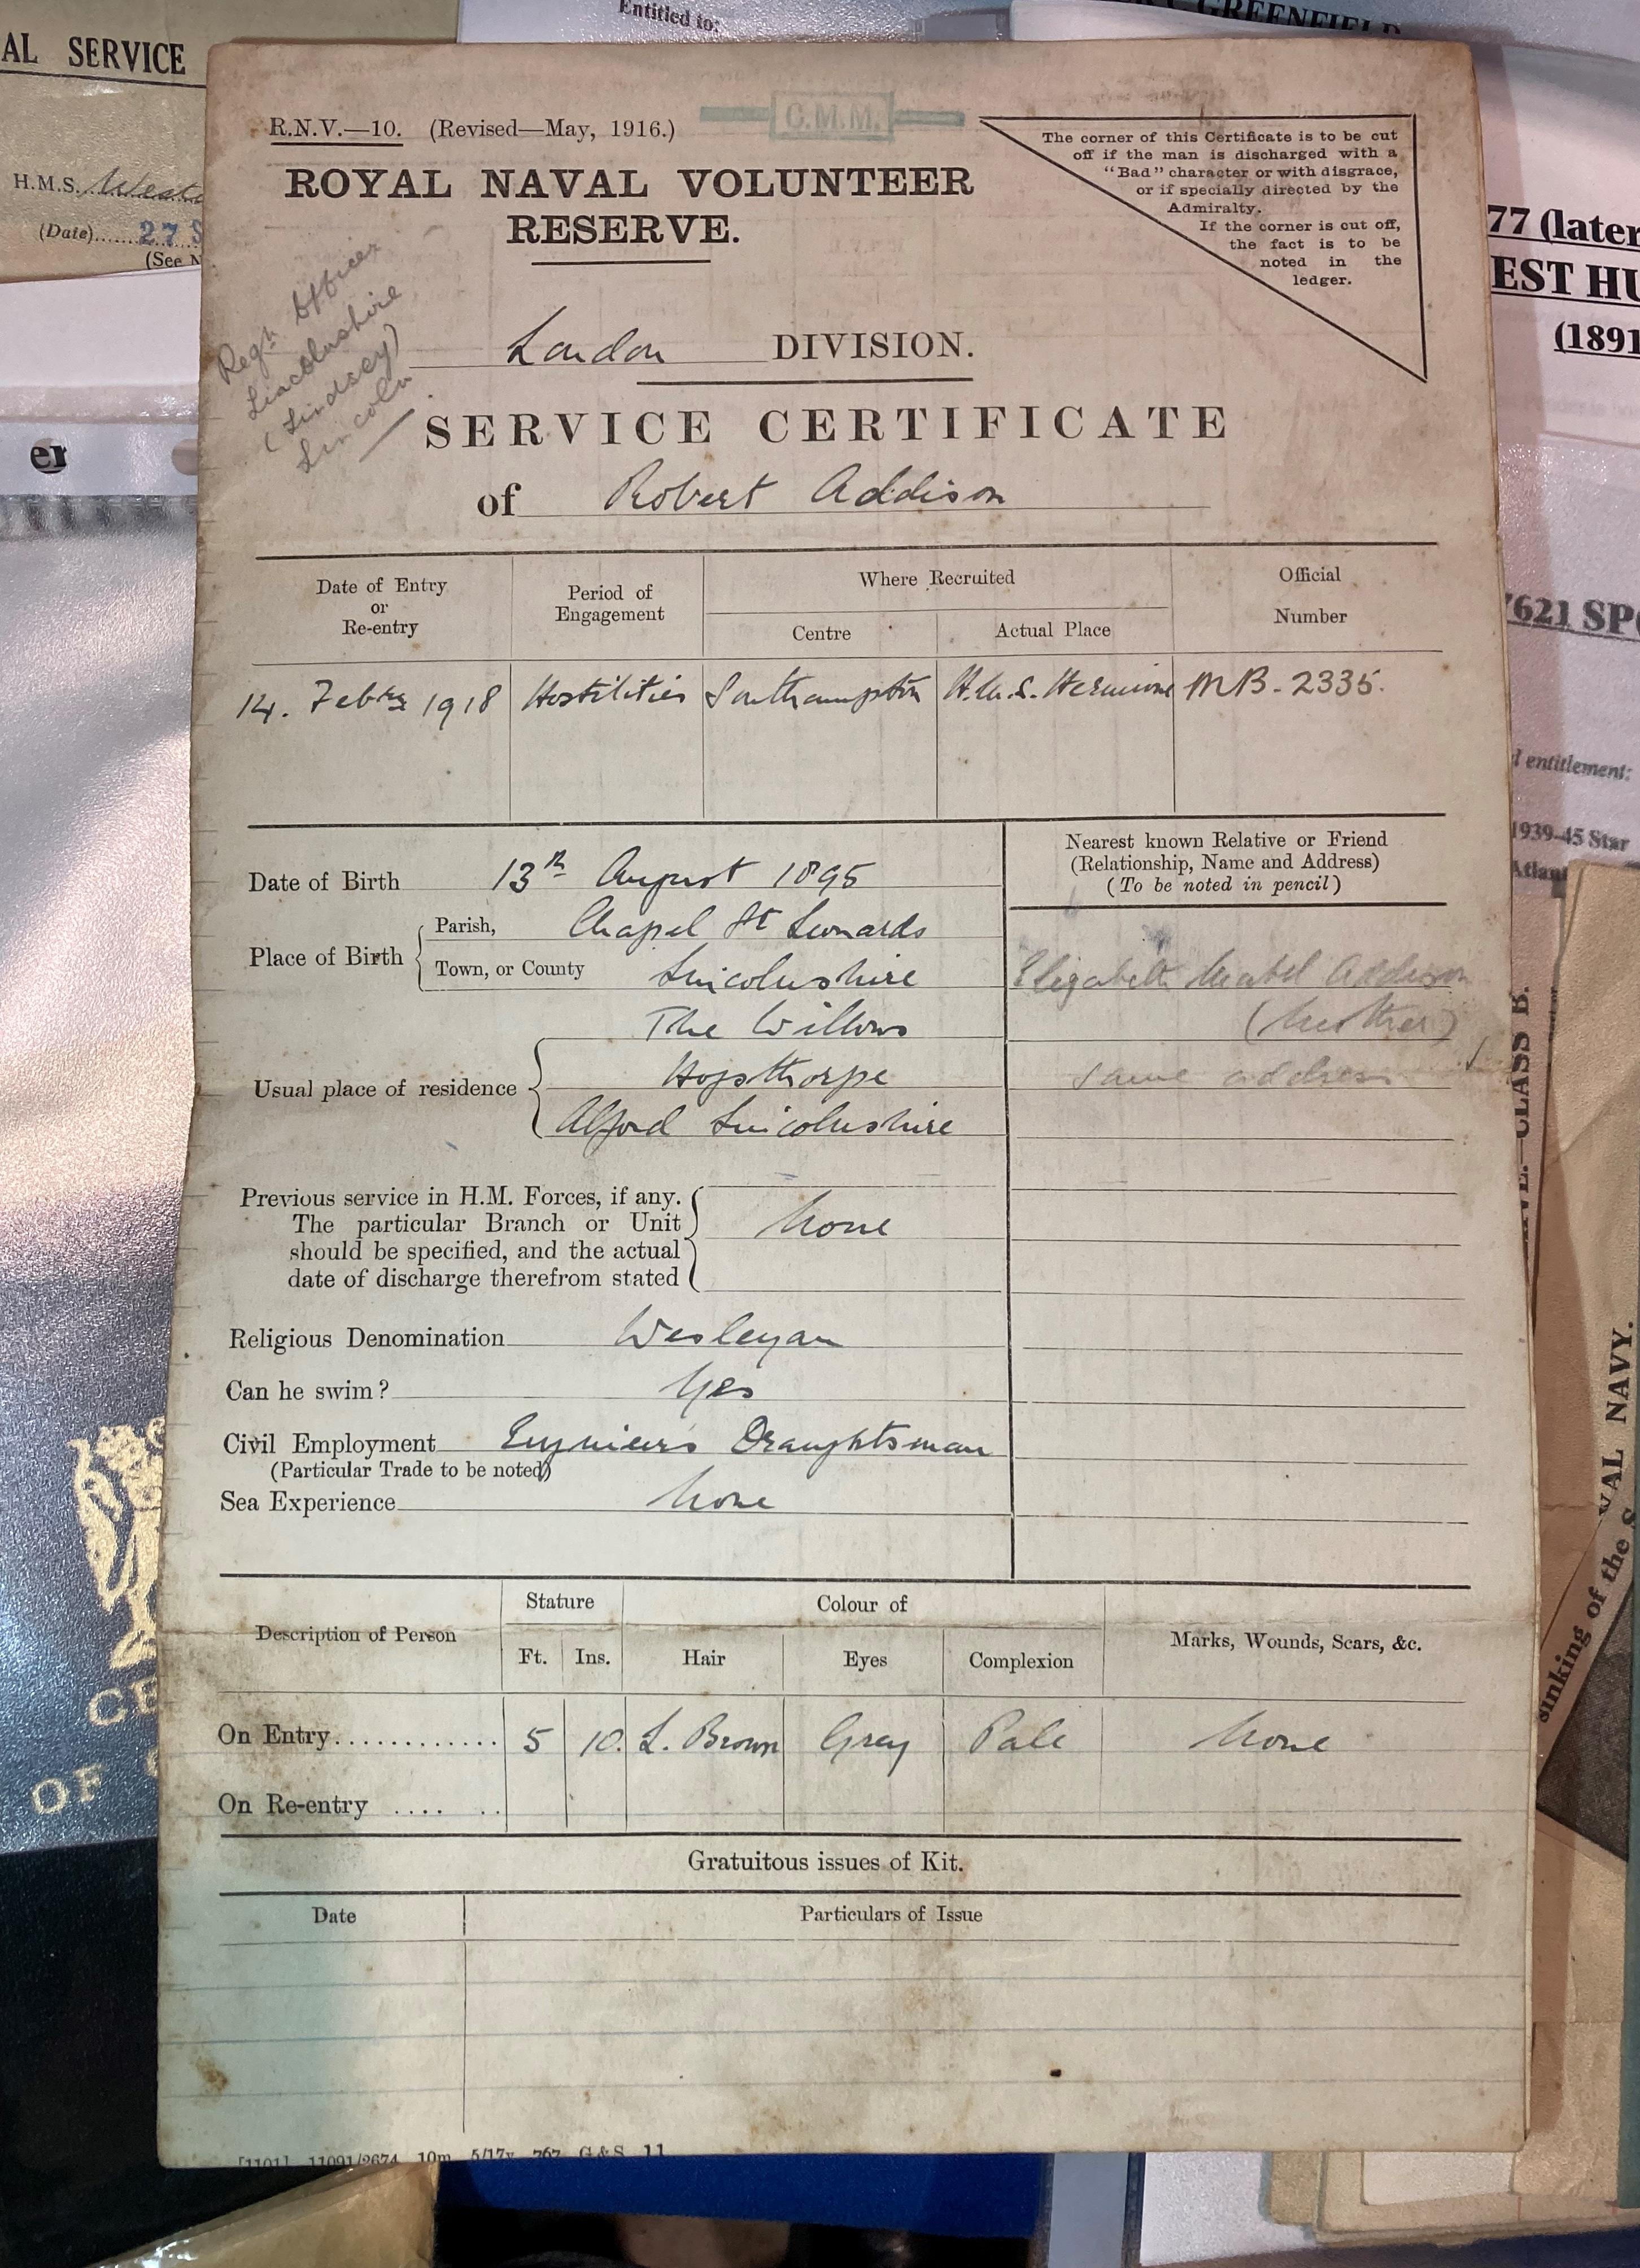 AL SERVICE
H.M.S.
(Date) 27 S
(See N
er
Entitled to:
GREENFIELD
C.M.M.
R.N.V.—10. (Revised—May, 1916.)
ROYAL NAVAL VOLUNTEER
RESERVE.
The corner of this Certificate is to be cut
off if the man is discharged with a
"Bad" character or with disgrace,
or if specially directed by the
Admiralty.
If the corner is cut off,
the fact is to be
noted in the
ledger.
Regr. Officer
Lincolnshire
(Lindsey)
Lincoln
London DIVISION.
SERVICE CERTIFICATE
of Robert Addison
Date of Entry
or
Re-entry
Period of
Engagement
Where Recruited
Centre
Actual Place
Official
Number
14. Febry 1918 Hostilities Southampton H.M.S. Hermione MB-2335.
Date of Birth 13th August 1895
Place of Birth
Parish, Chapel St Leonards
Town, or County Lincolnshire
Usual place of residence
The Willows
Hogsthorpe
Alford Lincolnshire
Nearest known Relative or Friend
(Relationship, Name and Address)
(To be noted in pencil)
Elizabeth Mabel Addison
(Mother)
same address
Previous service in H.M. Forces, if any.
The particular Branch or Unit
should be specified, and the actual
date of discharge therefrom stated
None
Religious Denomination Wesleyan
Can he swim? Yes
Civil Employment Engineers Draughtsman
(Particular Trade to be noted)
Sea Experience None
Description of Person
Stature
Ft. Ins.
Colour of
Hair Eyes Complexion
Marks, Wounds, Scars, &c.
On Entry............ 5 10. L. Brown Grey Pale None
On Re-entry .... ..
Gratuitous issues of Kit.
Date Particulars of Issue
[1101] 11091/2674 10m 5/17v 767 G & S 11
77 (later
EST HU
(1891
7621 SP
d entitlement:
1939-45 Star
Atlant
CLASS B.
VAL NAVY.
sinking of the S
CE
OF